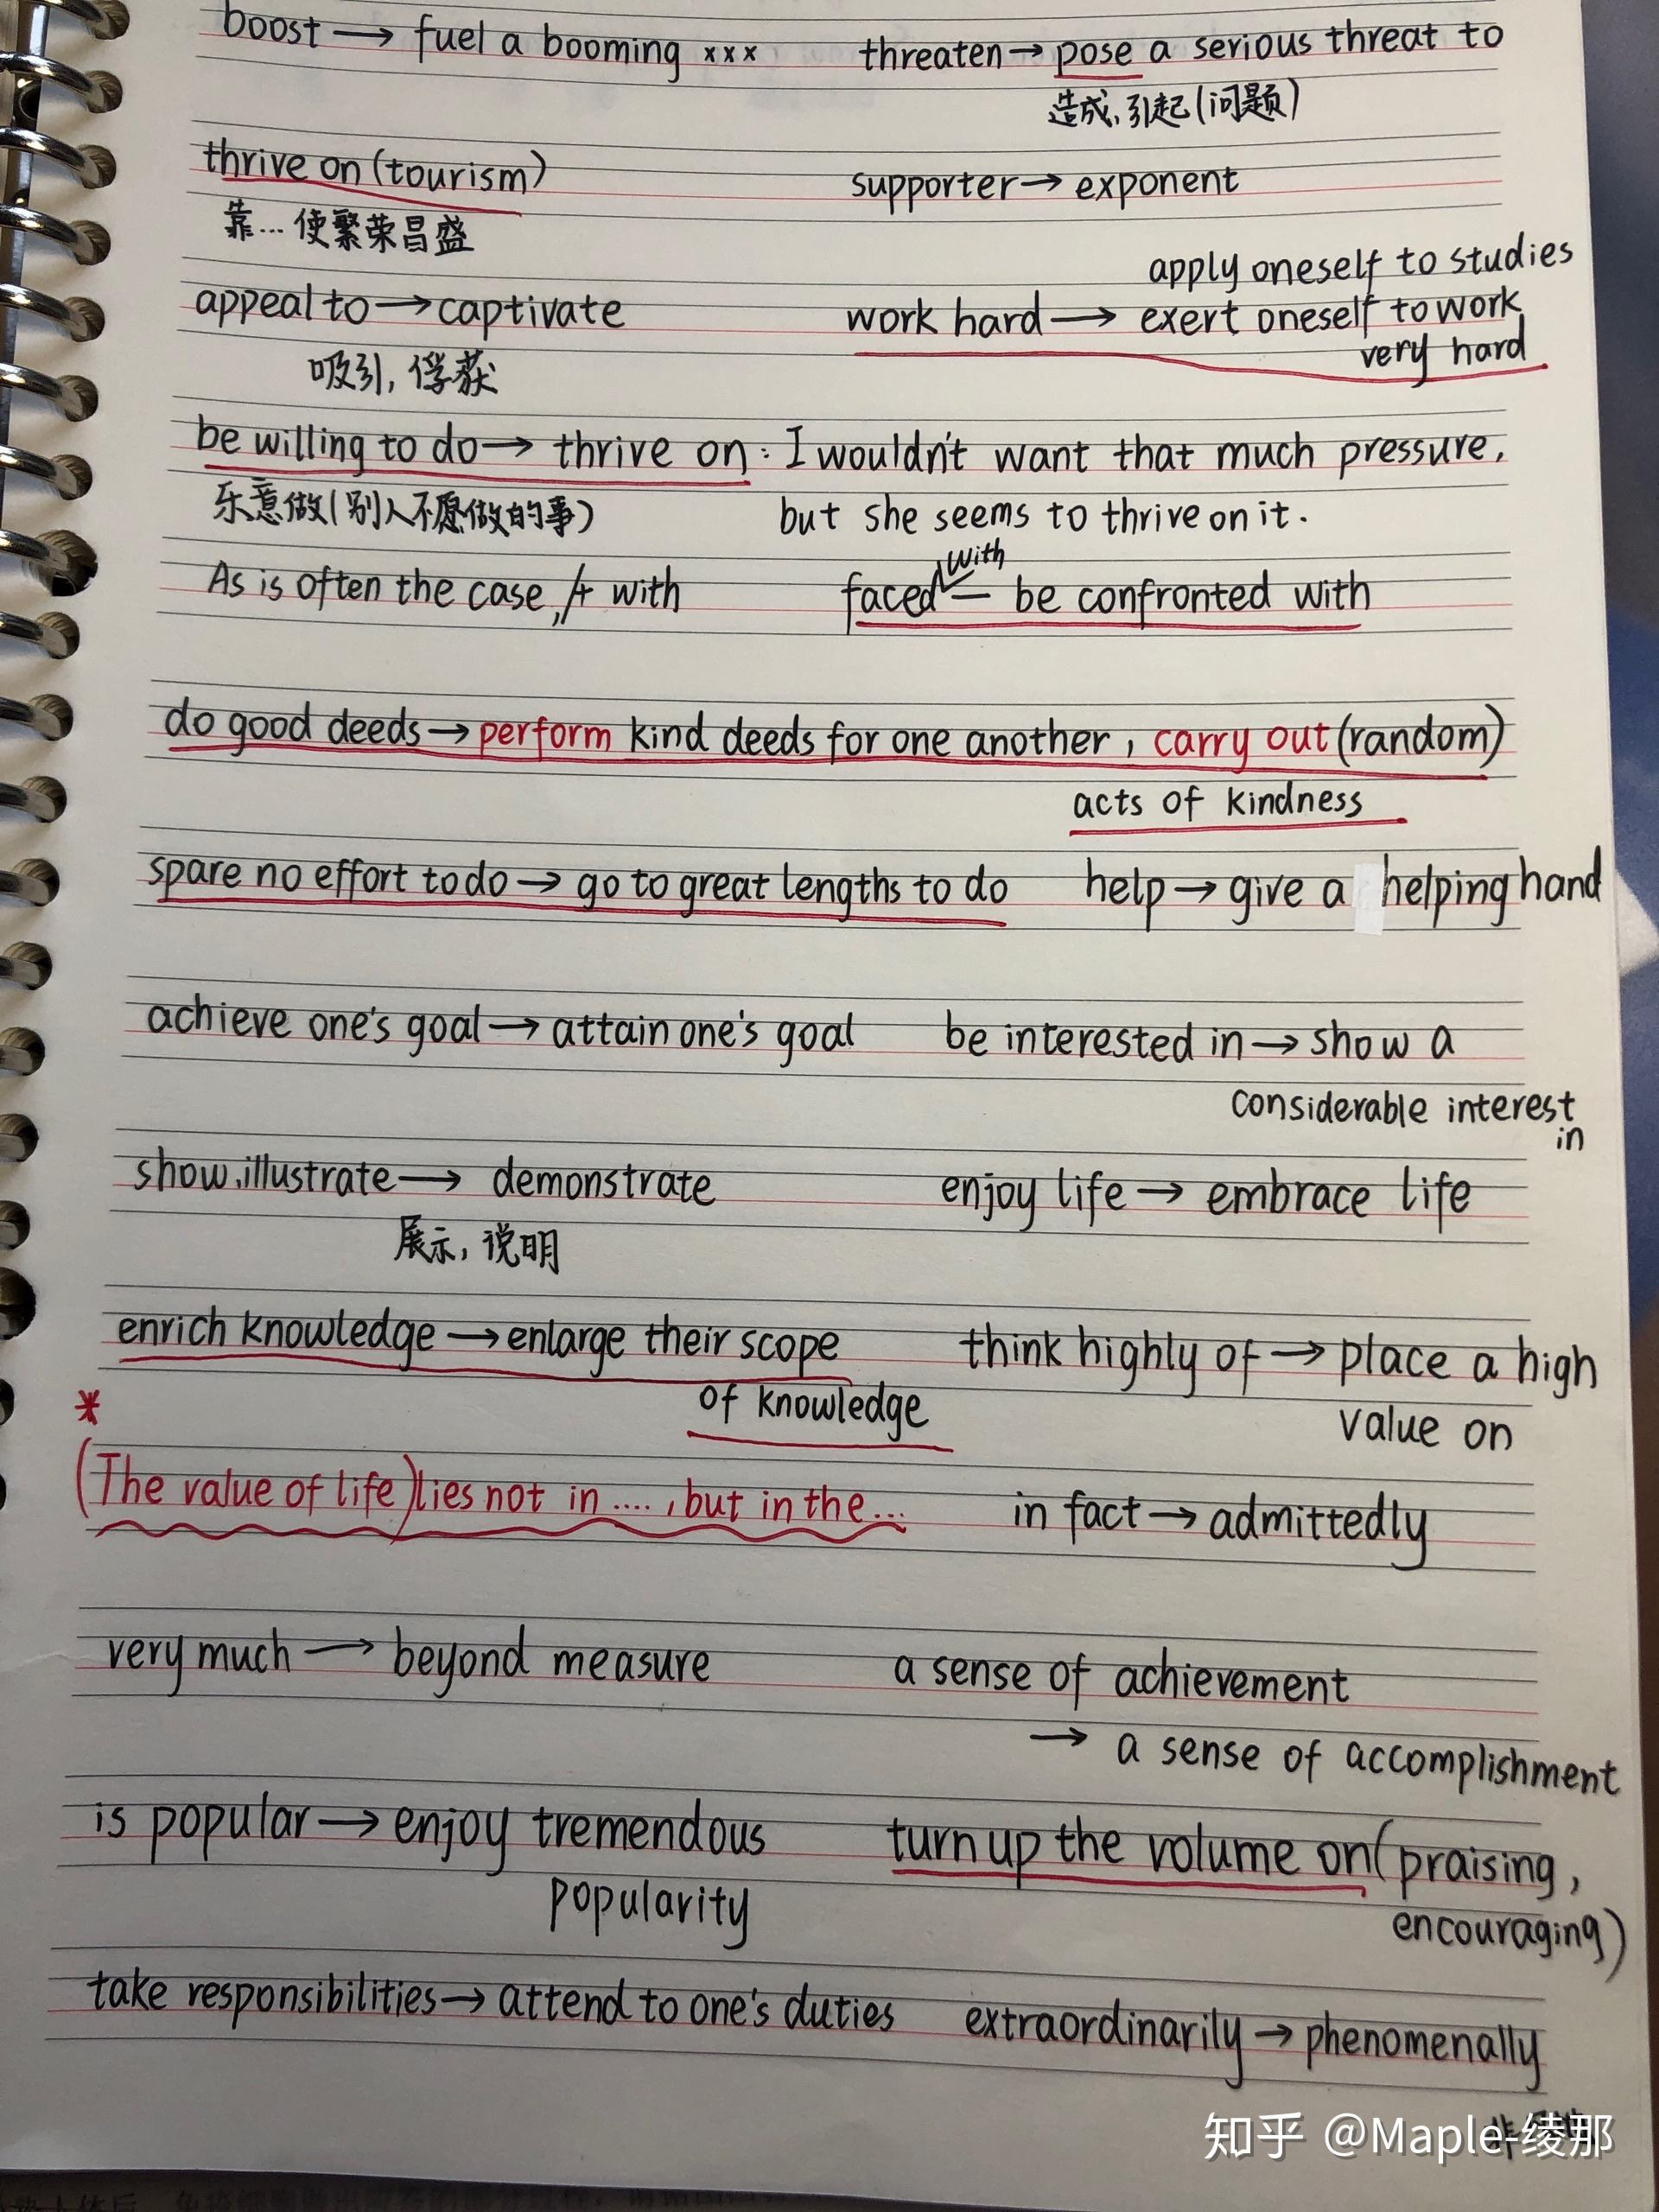 boost → fuel a booming xxx
threaten → pose a serious threat to
造成,引起(问题)
thrive on (tourism)
supporter → exponent
靠…使繁荣昌盛
apply oneself to studies
appeal to → captivate
work hard → exert oneself to work
very hard
吸引,俘获
be willing to do → thrive on : I wouldn't want that much pressure,
乐意做(别人不愿做的事)
but she seems to thrive on it.
with
As is often the case, /+ with
faced — be confronted with
do good deeds → perform kind deeds for one another, carry out (random)
acts of kindness
spare no effort to do → go to great lengths to do
help → give a helping hand
achieve one's goal → attain one's goal
be interested in → show a
considerable interest
in
show.illustrate → demonstrate
enjoy life → embrace life
展示,说明
enrich knowledge → enlarge their scope
think highly of → place a high
of knowledge
value on
*
(The value of life) lies not in ...., but in the...
in fact → admittedly
very much → beyond measure
a sense of achievement
→ a sense of accomplishment
is popular → enjoy tremendous
turn up the volume on (praising,
popularity
encouraging)
take responsibilities → attend to one's duties
extraordinarily → phenomenally
知乎 @Maple-绫那